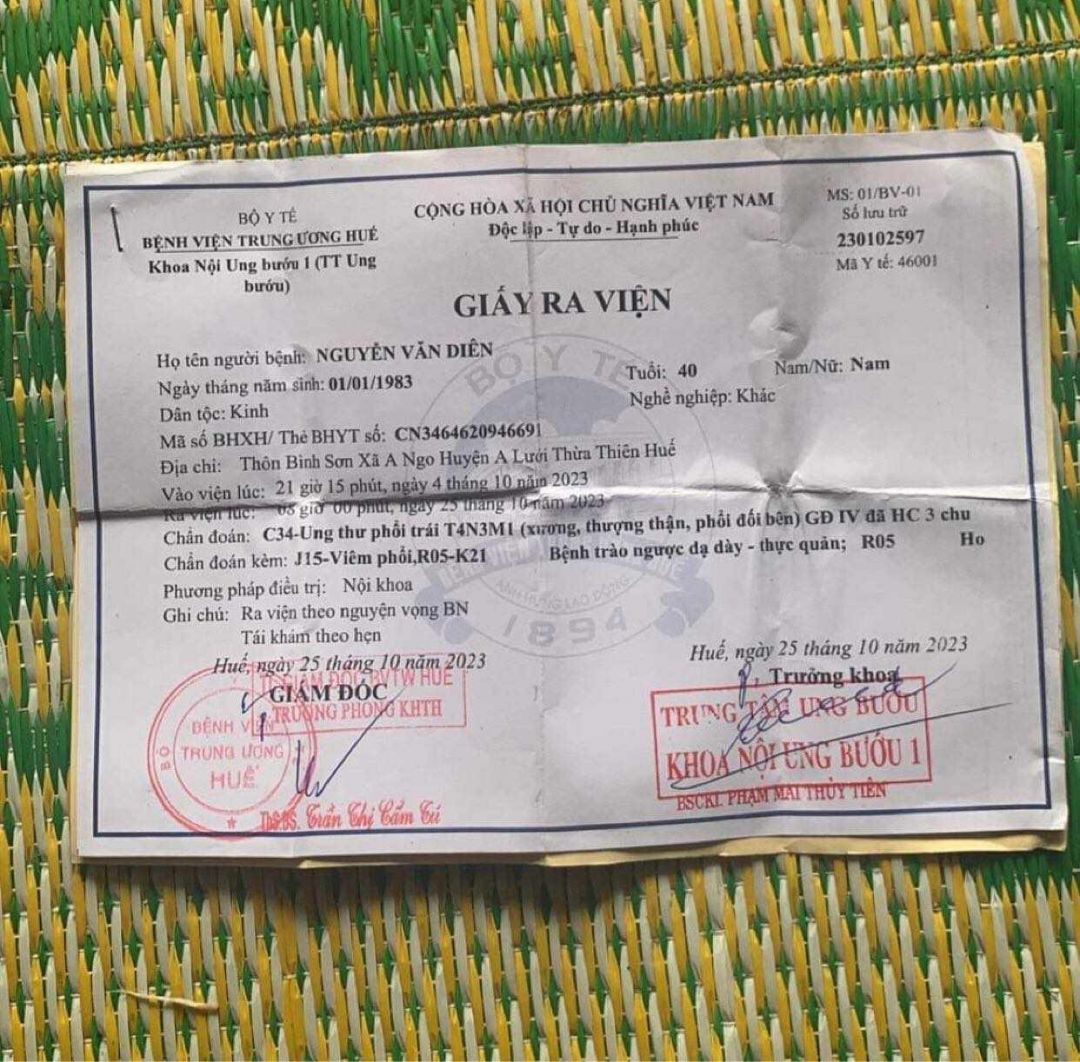 BỘ Y TẾ
BỆNH VIỆN TRUNG ƯƠNG HUẾ
Khoa Nội Ung bướu 1 (TT Ung
bướu)
CỘNG HÒA XÃ HỘI CHỦ NGHĨA VIỆT NAM
Độc lập - Tự do - Hạnh phúc
MS: 01/BV-01
Số lưu trữ
230102597
Mã Y tế: 46001
GIẤY RA VIỆN
Họ tên người bệnh: NGUYỄN VĂN DIÊN
Tuổi: 40 Nam/Nữ: Nam
Ngày tháng năm sinh: 01/01/1983
Nghề nghiệp: Khác
Dân tộc: Kinh
Mã số BHXH/ Thẻ BHYT số: CN3464620946691
Địa chỉ: Thôn Bình Sơn Xã A Ngo Huyện A Lưới Thừa Thiên Huế
Vào viện lúc: 21 giờ 15 phút, ngày 4 tháng 10 năm 2023
Ra viện lúc: 08 giờ 00 phút, ngày 25 tháng 10 năm 2023
Chẩn đoán: C34-Ung thư phổi trái T4N3M1 (xương, thượng thận, phổi đối bên) GĐ IV đã HC 3 chu
Chẩn đoán kèm: J15-Viêm phổi,R05-K21 Bệnh trào ngược dạ dày - thực quản; R05 Ho
Phương pháp điều trị: Nội khoa
Ghi chú: Ra viện theo nguyện vọng BN
Tái khám theo hẹn
Huế, ngày 25 tháng 10 năm 2023
GIÁM ĐỐC
GIÁM ĐỐC BVTW HUẾ
TRƯỞNG PHÒNG KHTH
BỆNH VIỆN
TRUNG ƯƠNG
HUẾ
ThS.BS. Trần Thị Cẩm Tú
Huế, ngày 25 tháng 10 năm 2023
Trưởng khoa
TRUNG TÂM UNG BƯỚU
KHOA NỘI UNG BƯỚU 1
BSCKI. PHẠM MAI THỦY TIÊN
BỘ Y TẾ
ANH HÙNG LAO ĐỘNG
1894